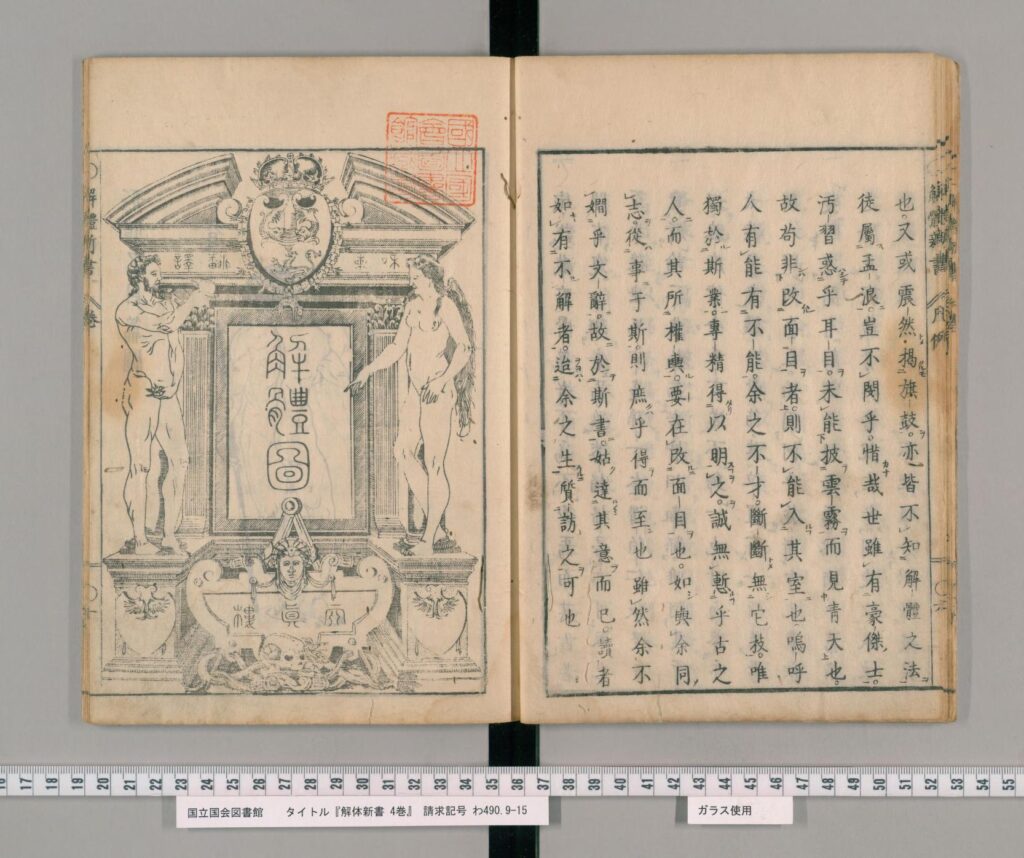 解體新書 凡例
也。又或震然揭旗鼓。亦皆不知解體之法
徒屬孟浪。豈不閔乎。惜哉世雖有豪傑士。
汚習惑乎耳目。未能披雲霧而見青天也。
故苟非改面目者。則不能入其室也。嗚呼
人有能有不能。余之不才。斷斷無它技。唯
獨於斯業。專精得以明之。誠無慙乎古之
人。而其所權輿。要在改面目也。如與余同
志。從事于斯。則庶乎得而至也。雖然余不
嫺乎文辭。故於斯書。姑達其意而已。讀者
如有不解者。迨余之生。質訪之可也
和蘭翻譯
解體圖
天眞樓
解體新書 卷
16 17 18 19 20 21 22 23 24 25 26 27 28 29 30 31 32 33 34 35 36 37 38 39 40 41 42 43 44 45 46 47 48 49 50 51 52 53 54 55
国立国会図書館 タイトル『解体新書 4巻』 請求記号 わ490.9-15
ガラス使用